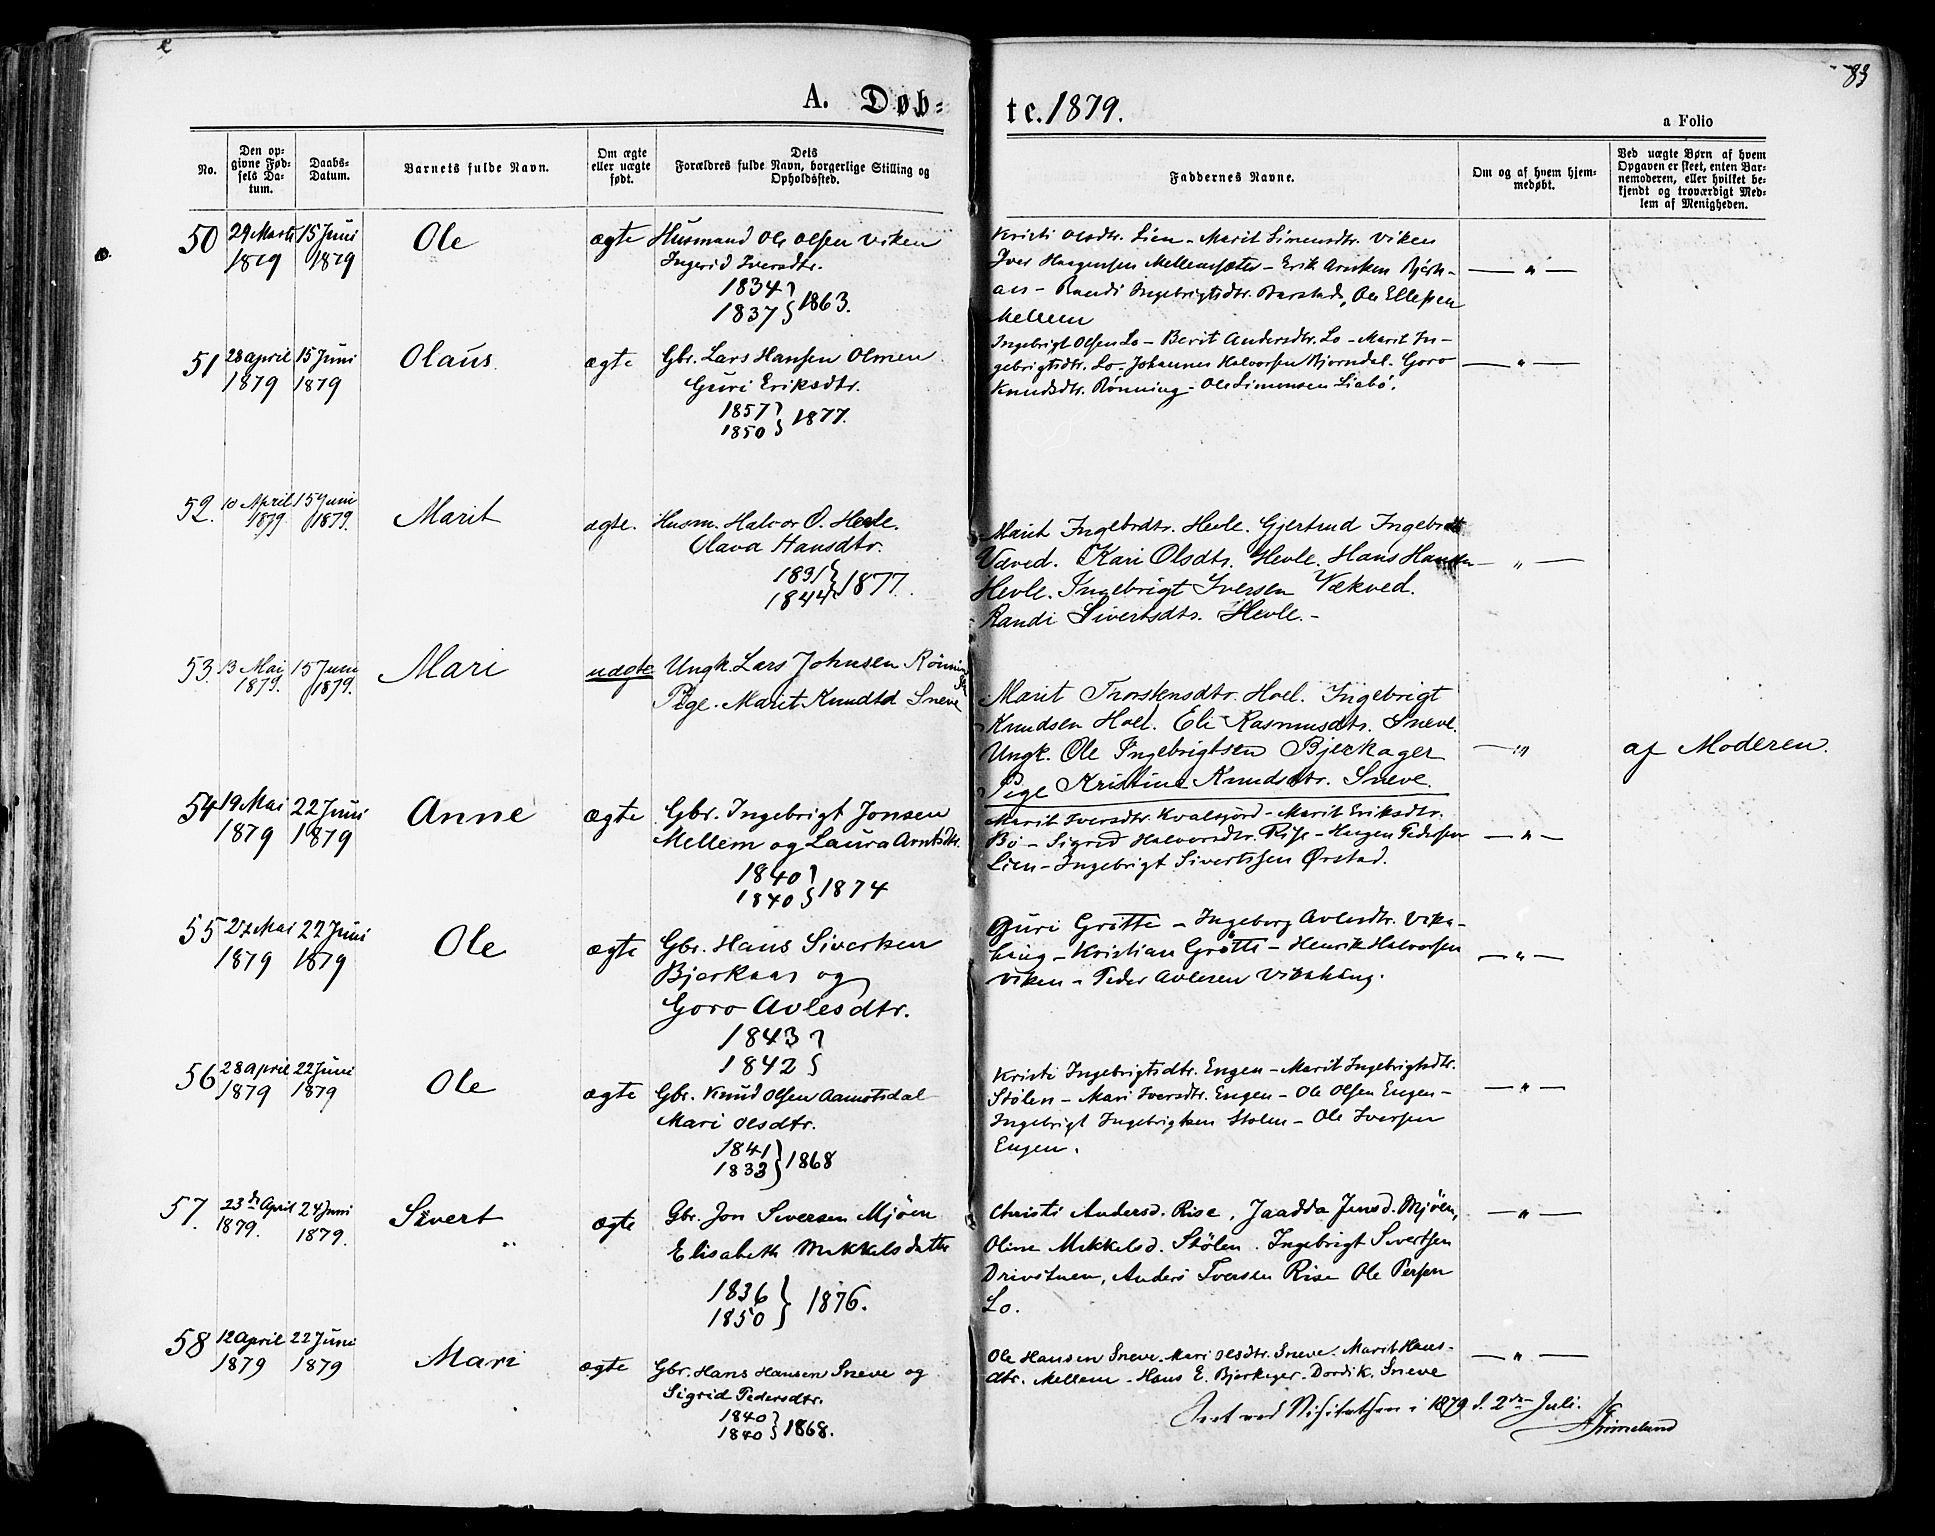 83
A. Døb=
te. 1879.
a Folio
No.
Den op-
givne Fød-
sels Da-
tum.
Daabs-
Datum.
Barnets fulde Navn.
Om ægte
eller uægte
født.
Dets
Forældres fulde Navn, borgerlige Stilling og
Opholdssted.
Faddernes Navne.
Om og af hvem hjem-
medøbt.
Ved uægte Børn af hvem
Opgaven er skeet, enten Bar-
nemoderen, eller hvilket be-
kjendt og troværdigt Med-
lem af Menigheden.
50 29 Marts 15 Juni Ole ægte Husmand Ole Olsen Viken
1879 1879 Ingerid Iversdtr.
1834
1837 } 1863.
Kristi Olsdtr. Lien - Marit Simensdtr. Viken
Iver Haagensen Mellemsæter - Erik Arntsen Bjerk-
aas - Randi Ingebrigtsdtr. Barstad, Ole Ellefsen
Mellem
— " —
51 28 april 15 Juni Olaus. ægte Gbr. Lars Hansen Olmen
1879 1879 Guri Eriksdtr.
1857
1850 } 1877.
Ingebrigt Olsen Lo - Berit Andersdtr. Lo - Marit In-
gebrigtsdtr. Lo - Johannes Halvorsen Bjørndal - Goro
Knudsdtr. Rønning - Ole Simensen Liabø.
— " —
52. 10 April 15 Juni Marit ægte. Husm. Halvor O. Hevle.
1879. 1879. Olava Hansdtr.
1831
1844 } 1877.
Marit Ingebrdtr. Hevle. Gjertrud Ingebrdtr
Væved. Kari Olsdtr. Hevle. Hans Hansen
Hevle. Ingebrigt Iversen Vækved.
Randi Sivertsdtr. Hevle. -
— " —
53. 13 Mai 15 Juni Mari uægte Ungk. Lars Johnsen Rønning
1879. 1879.
Pige. Marit Knudtd Sneve
Marit Thorstensdtr. Hoel. Ingebrigt
Knudsen Hoel. Eli Rasmusdtr. Sneve.
Ungk. Ole Ingebrigtsen Bjerkager
Pige Kristine Knudsdtr. Sneve.
— " — af Moderen.
54 19 Mai 22 Juni Anne ægte Gbr. Ingebrigt Jonsen
1879 1879 Mellem og Laura Arntsdtr.
1840
1840 } 1874
Marit Iversdtr. Kvalsjord - Marit Eriksdtr.
Bø - Sigrid Halvorsdtr. Rise - Haagen Pedersen
Lien - Ingebrigt Sivertsen Ørstad.
— " —
55 27 Mai 22 Juni Ole ægte Gbr. Hans Sivertsen
1879 1879 Bjerkaas og
Goro Avlesdtr.
1843
1842 }
Guri Grøtte - Ingeborg Avlesdtr. Vika-
haug - Kristian Grøtte - Henrik Halvorsen
Viken - Peder Avlesen Vikahaug.
— " —
56 28 april 22 Juni Ole ægte Gbr. Knud Olsen Aamotsdal
1879 1879 Mari Olsdtr.
1841
1833 } 1868
Kristi Ingebrigtsdtr. Engen - Marit Ingebrigtsdtr.
Stølen - Mari Iversdtr. Engen - Ole Olsen Engen -
Ingebrigt Ingebrigtsen Stølen - Ole Iversen
Engen.
— " —
57. 23de April 24 Juni Sivert ægte Gbr. Jon Siversen Mjøen
1879. 1879. Elisabeth Mikkelsdatter
1836
1850 } 1876.
Christi Andersd. Rise, Jaadda Jensd. Mjøen,
Oline Mikkelsd. Stølen. Ingebrigt Sivertsen
Drivstuen, Anders Iversen Rise Ole Persen
Lo.
— " —
58 12 april 22 Juni Mari ægte Gbr. Hans Hansen Sneve og
1879 1879 Sigrid Pedersdtr.
1840
1840 } 1868.
Ole Hansen Sneve. Mari Olsdtr. Sneve. Marit Hans-
dtr. Mellem - Hans E. Bjerkager - Dordi K. Sneve
— " —
Seet ved Visitatsen i 1879 d. 2den Juli.